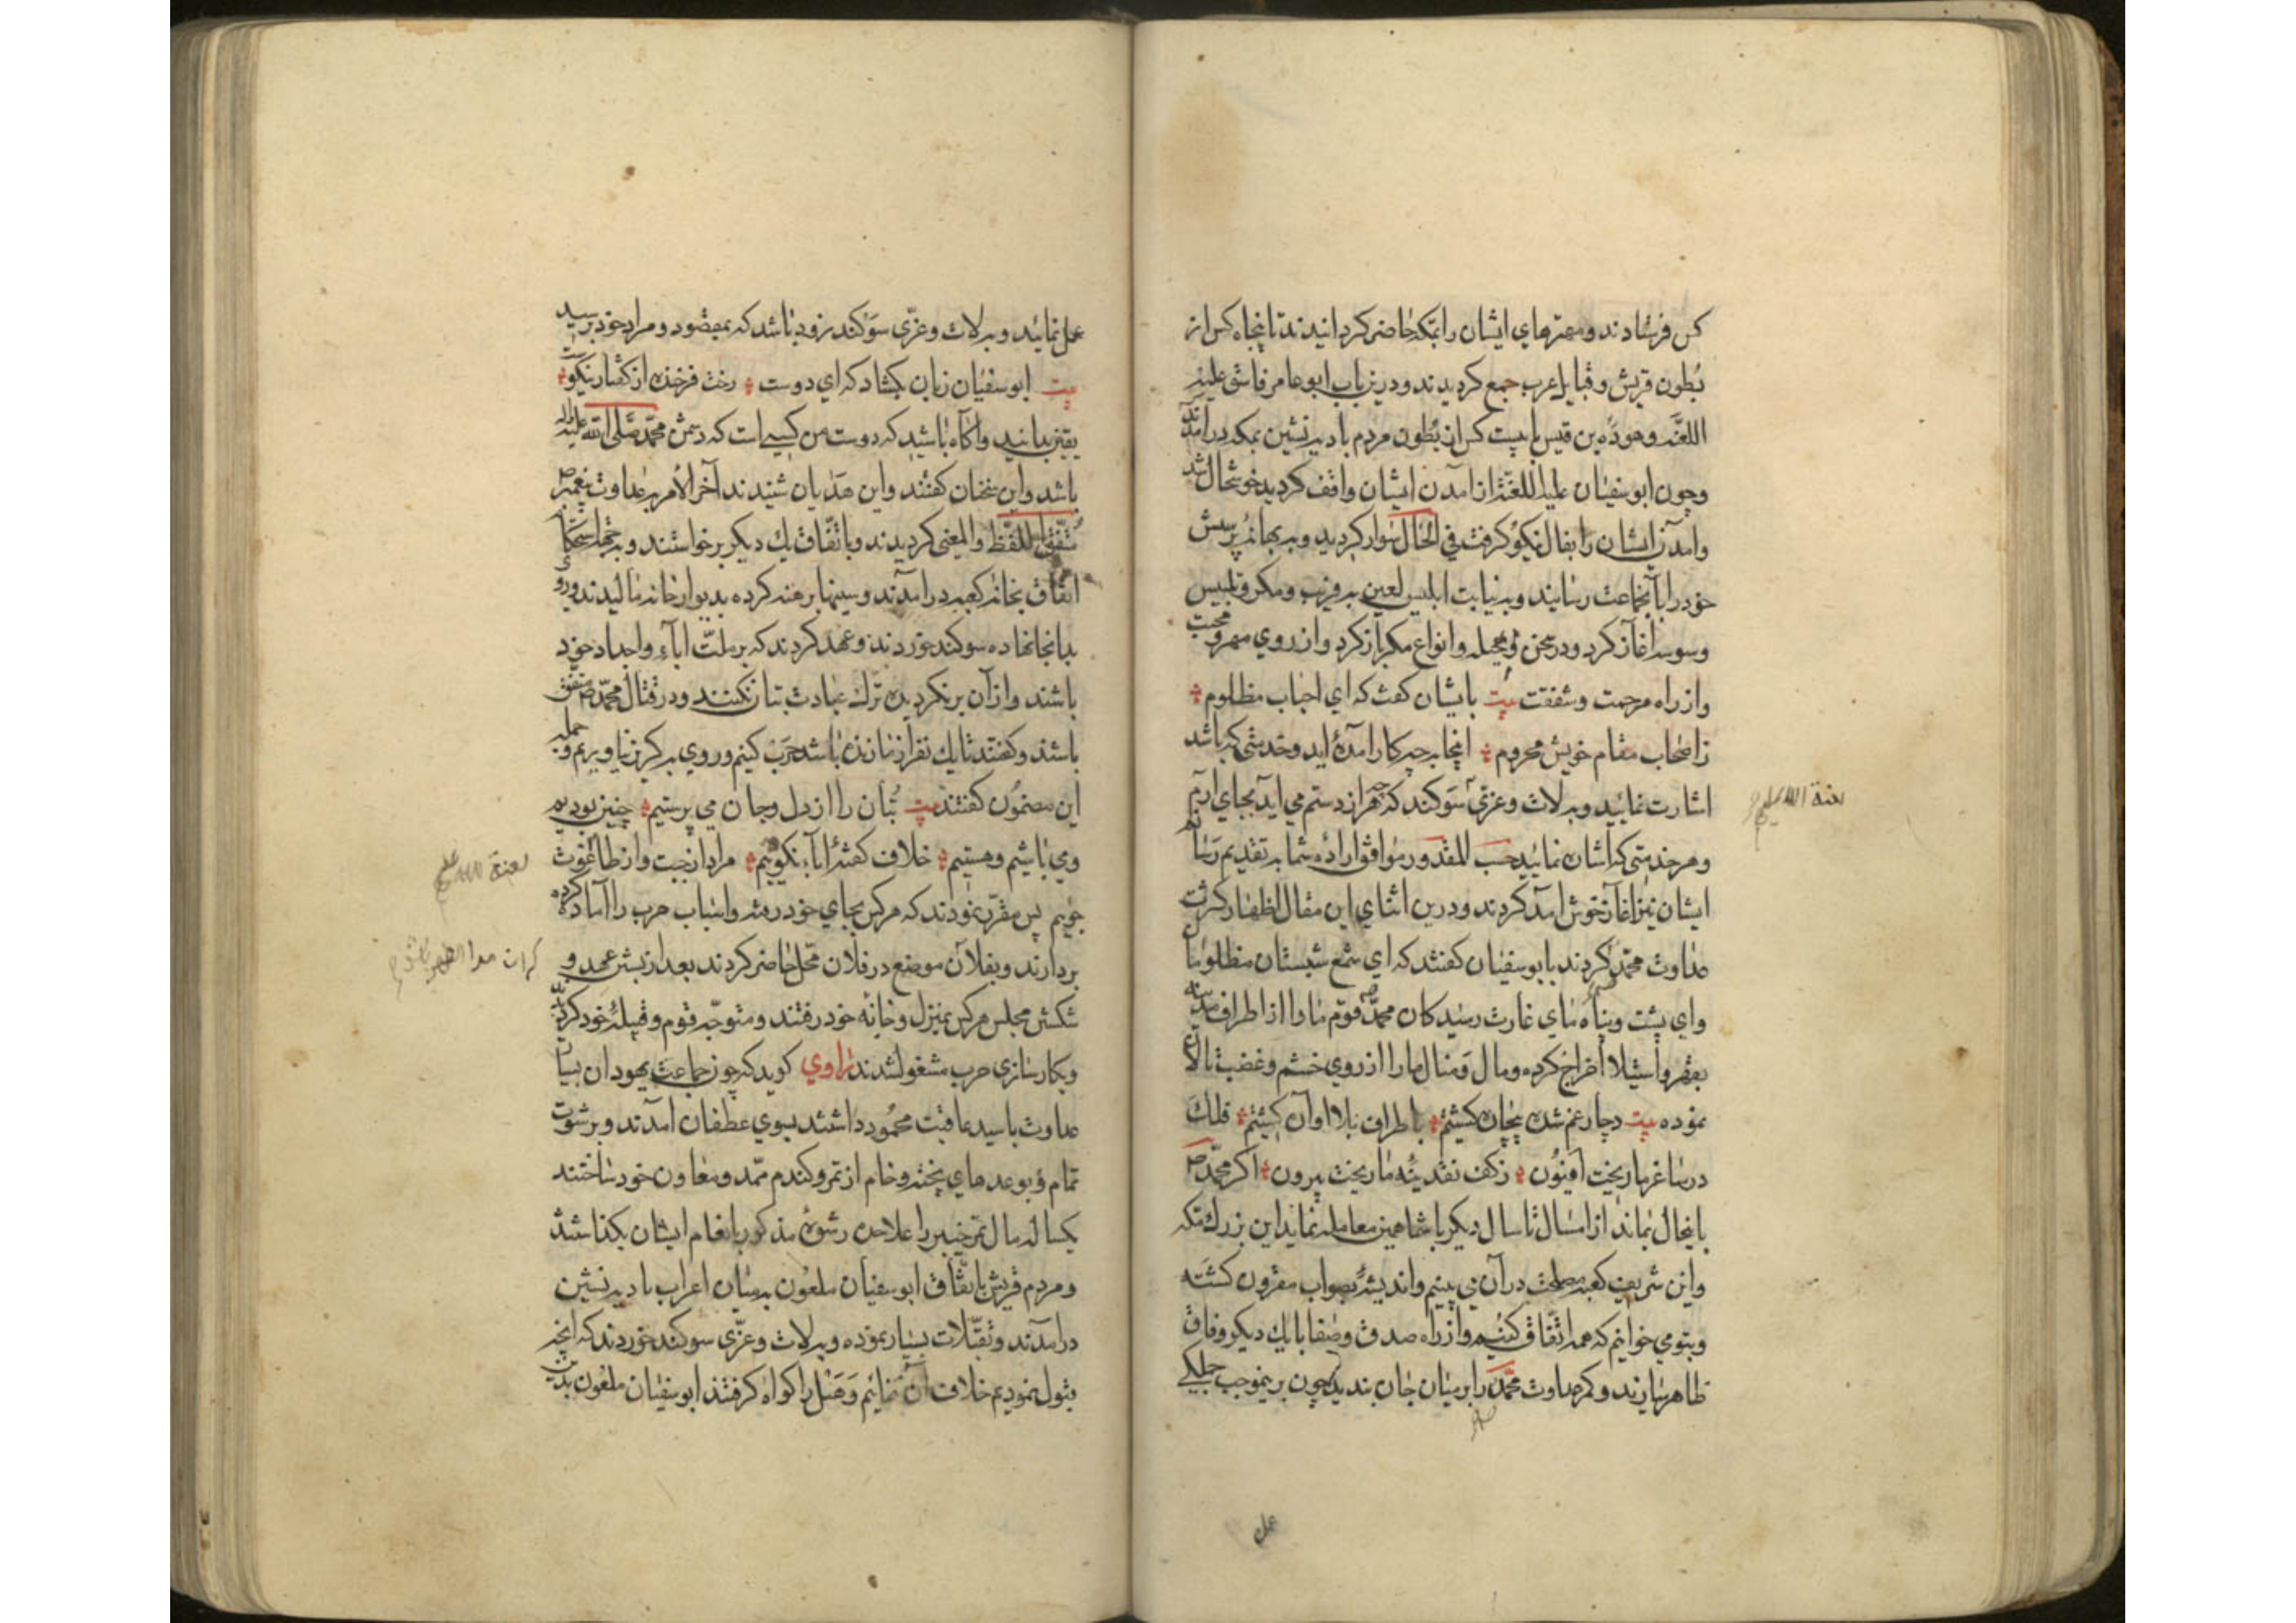 کس فرستادند و مهترهای ایشان را بمکه حاضر کردانیدند تا پنجاه کس از
بُطون قریش و قبایل عرب جمع کردیدند و درین باب ابو عامر فاسق علیه
اللعنه وهوذه بن قیس با بیست کس از بُطون مردم بادیه نشین بمکه درآمدند
وچون ابوسفیان علیه اللعنة از آمدن ایشان واقف کردید خوشحال شد
وآمدن ایشان را بفال نیکو کرفت فی الحال سوار کردید و به بهانه پرسش
خود را بآنجماعت رسانید و به نیابت ابلیس لعین به فریب و مکر و تلبیس
وسوسه آغاز کرد و در سخن و حیله و انواع مکر باز کرد و از روی مهر و محبت
واز راه مرحمت و شفقت بیت بایشان کفت که ای احباب مظلوم
ز اصحاب مقام خویش محروم اینجا بچه کار آمده اید و خدمتی که باشد
اشارت نمایید و به لات و عزّی سوکند که هرچه از دستم می آید بجای آرم
وهر خدمتی که اشان نمایید حسب المقدور موافق اراده شما به تقدیم رسانم
ایشان نیز آغاز خوش آمد کردند و درین اثنای این مقال اظهار کثرت
عداوت محمد کردند با بوسفیان کفتند که ای شمع شبستان مظلومان
وای پشت و پناه مای غارت رسیدکان محمد قوم ما را از اطراف مدینه
بقهر و استیلا اخراج کرده و مال و منال ما را از روی خشم و غضب تالان
نموده بیت دچار غم شده بیجان کشتیم باطراف بلا اوان کشتیم فلک
در ساغر ما ریخت افیون ز کف نقدینه ما ریخت بیرون اکر محمد ص
باینحال بماند از امسال تا سال دیکر با شما همین معامله نماید این بزرك مکه
واین شریف کعبه مصلحت در آن می بینیم و اندیشهٔ بصواب مقرون کشته
وبتو می خوانیم که همه اتفاق کنیم و از راه صدق و صفا با یك دیکر وفاق
ظاهر سازند و کمر عداوت محمد را بر میان جان بندید چون برینموجب جملکی
عمل
لعنة الله علیه
عمل نمائید و به لات و عزّی سوکند زود باشد که بمقصود و مراد خود برسید
بیت ابوسفیان زبان بکشاد که ای دوست رخت فرخنده از کفتار نیکوست
یقین بدانید و آکاه باشید که دوست من کسی است که دشمن محمد صلی الله علیه واله
باشد و این سخنان کفتند و این هذیان شنیدند آخر الأمر بعداوت پیغمبر ص
متّفق اللفظ والمعنی کردیدند و باتّفاق یك دیکر برخواستند و
اتفاق بخانه کعبه درآمدند و سینها برهنه کرده بدیوار خانه مالیدند و رو
بدانجا نهاده سوکند خوردند و عهد کردند که بر ملّت اباء و اجداد خود
باشند و از آن برنکردیده ترك عبادت بتان نکنند و در قتال محمد ص متفق
باشند و کفتند تا یك نفر از ما زنده باشد حرب کنیم و روی به کریز نیاوریم و جمله
این مضمون کفتند بیت بُتان را از دل و جان می پرستیم چنین بودیم
ومی باشیم و هستیم خلاف کفتهٔ اباء نکوییم مراد از جبت و از طاغوت
جوییم پس مقرّر نمودند که هرکس بجای خود رفته و اسباب حرب را آماده کرده
بردارند و بفلان موضع در فلان محل حاضر کردند بعد از بستن عهد و
شکستن مجلس هرکس بمنزل و خانه خود رفتند و متوجّه قوم و قبیلهٔ خود کردید
وبکارسازی حرب مشغول شدند راوی کوید که چون جماعت یهودان بسیار
عداوت بامید عاقبت محمود داشتند بسوی عطفان آمدند و برشوت
تمام و بوعدهای پخته و خام از تمر و کندم ممّد و معاون خود ساختند
یکساله مال تمر خیبر را علاحده رشوهٔ مذکور بانعام ایشان بکذاشتند
ومردم قریش باتّفاق ابوسفیان ملعون بمیان اعراب بادیه نشین
درآمدند و تقبّلات بسیار نموده و به لات و عزّی سوکند خوردند که آنچه
قبول نمودیم خلاف آن ننمائیم و هَبَل را کواه کرفتند ابوسفیان ملعون بدین
لعنة الله علیه